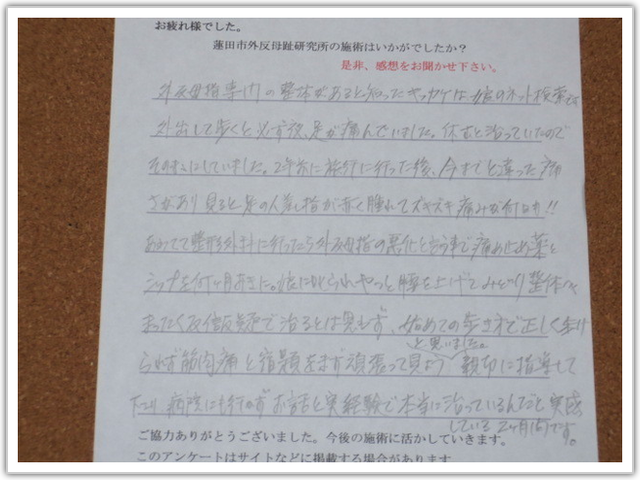 お疲れ様でした。
蓮田市外反母趾研究所の施術はいかがでしたか？
是非、感想をお聞かせ下さい。
外反母指専門の整体があると知ったキッカケは娘のネット検索です
外出して歩くと必ず夜、足が痛んでいました。休むと治っていたので
そのままにしていました。2年前に旅行に行った後、今までと違った痛
さがあり見ると足の人差し指が赤く腫れてズキズキ痛みが何日も!!
あわてて整形外科に行ったら外反母指の悪化と言う事で痛め止め薬と
シップを何ヶ月 に。娘に しかられやっと腰を上げてみどり整体へ
まったく反信反疑で治るとは思もず、始めての歩き方で正しく歩け
と思いました。
られず筋肉痛と宿題をまず頑張って見よう 親切に指導して
下さり 病院にも行かず お話と実経験で本当に治っているんだと実感
している 2ヶ月間です。
ご協力ありがとうございました。今後の施術に活かしていきます。
このアンケートはサイトなどに掲載する場合があります